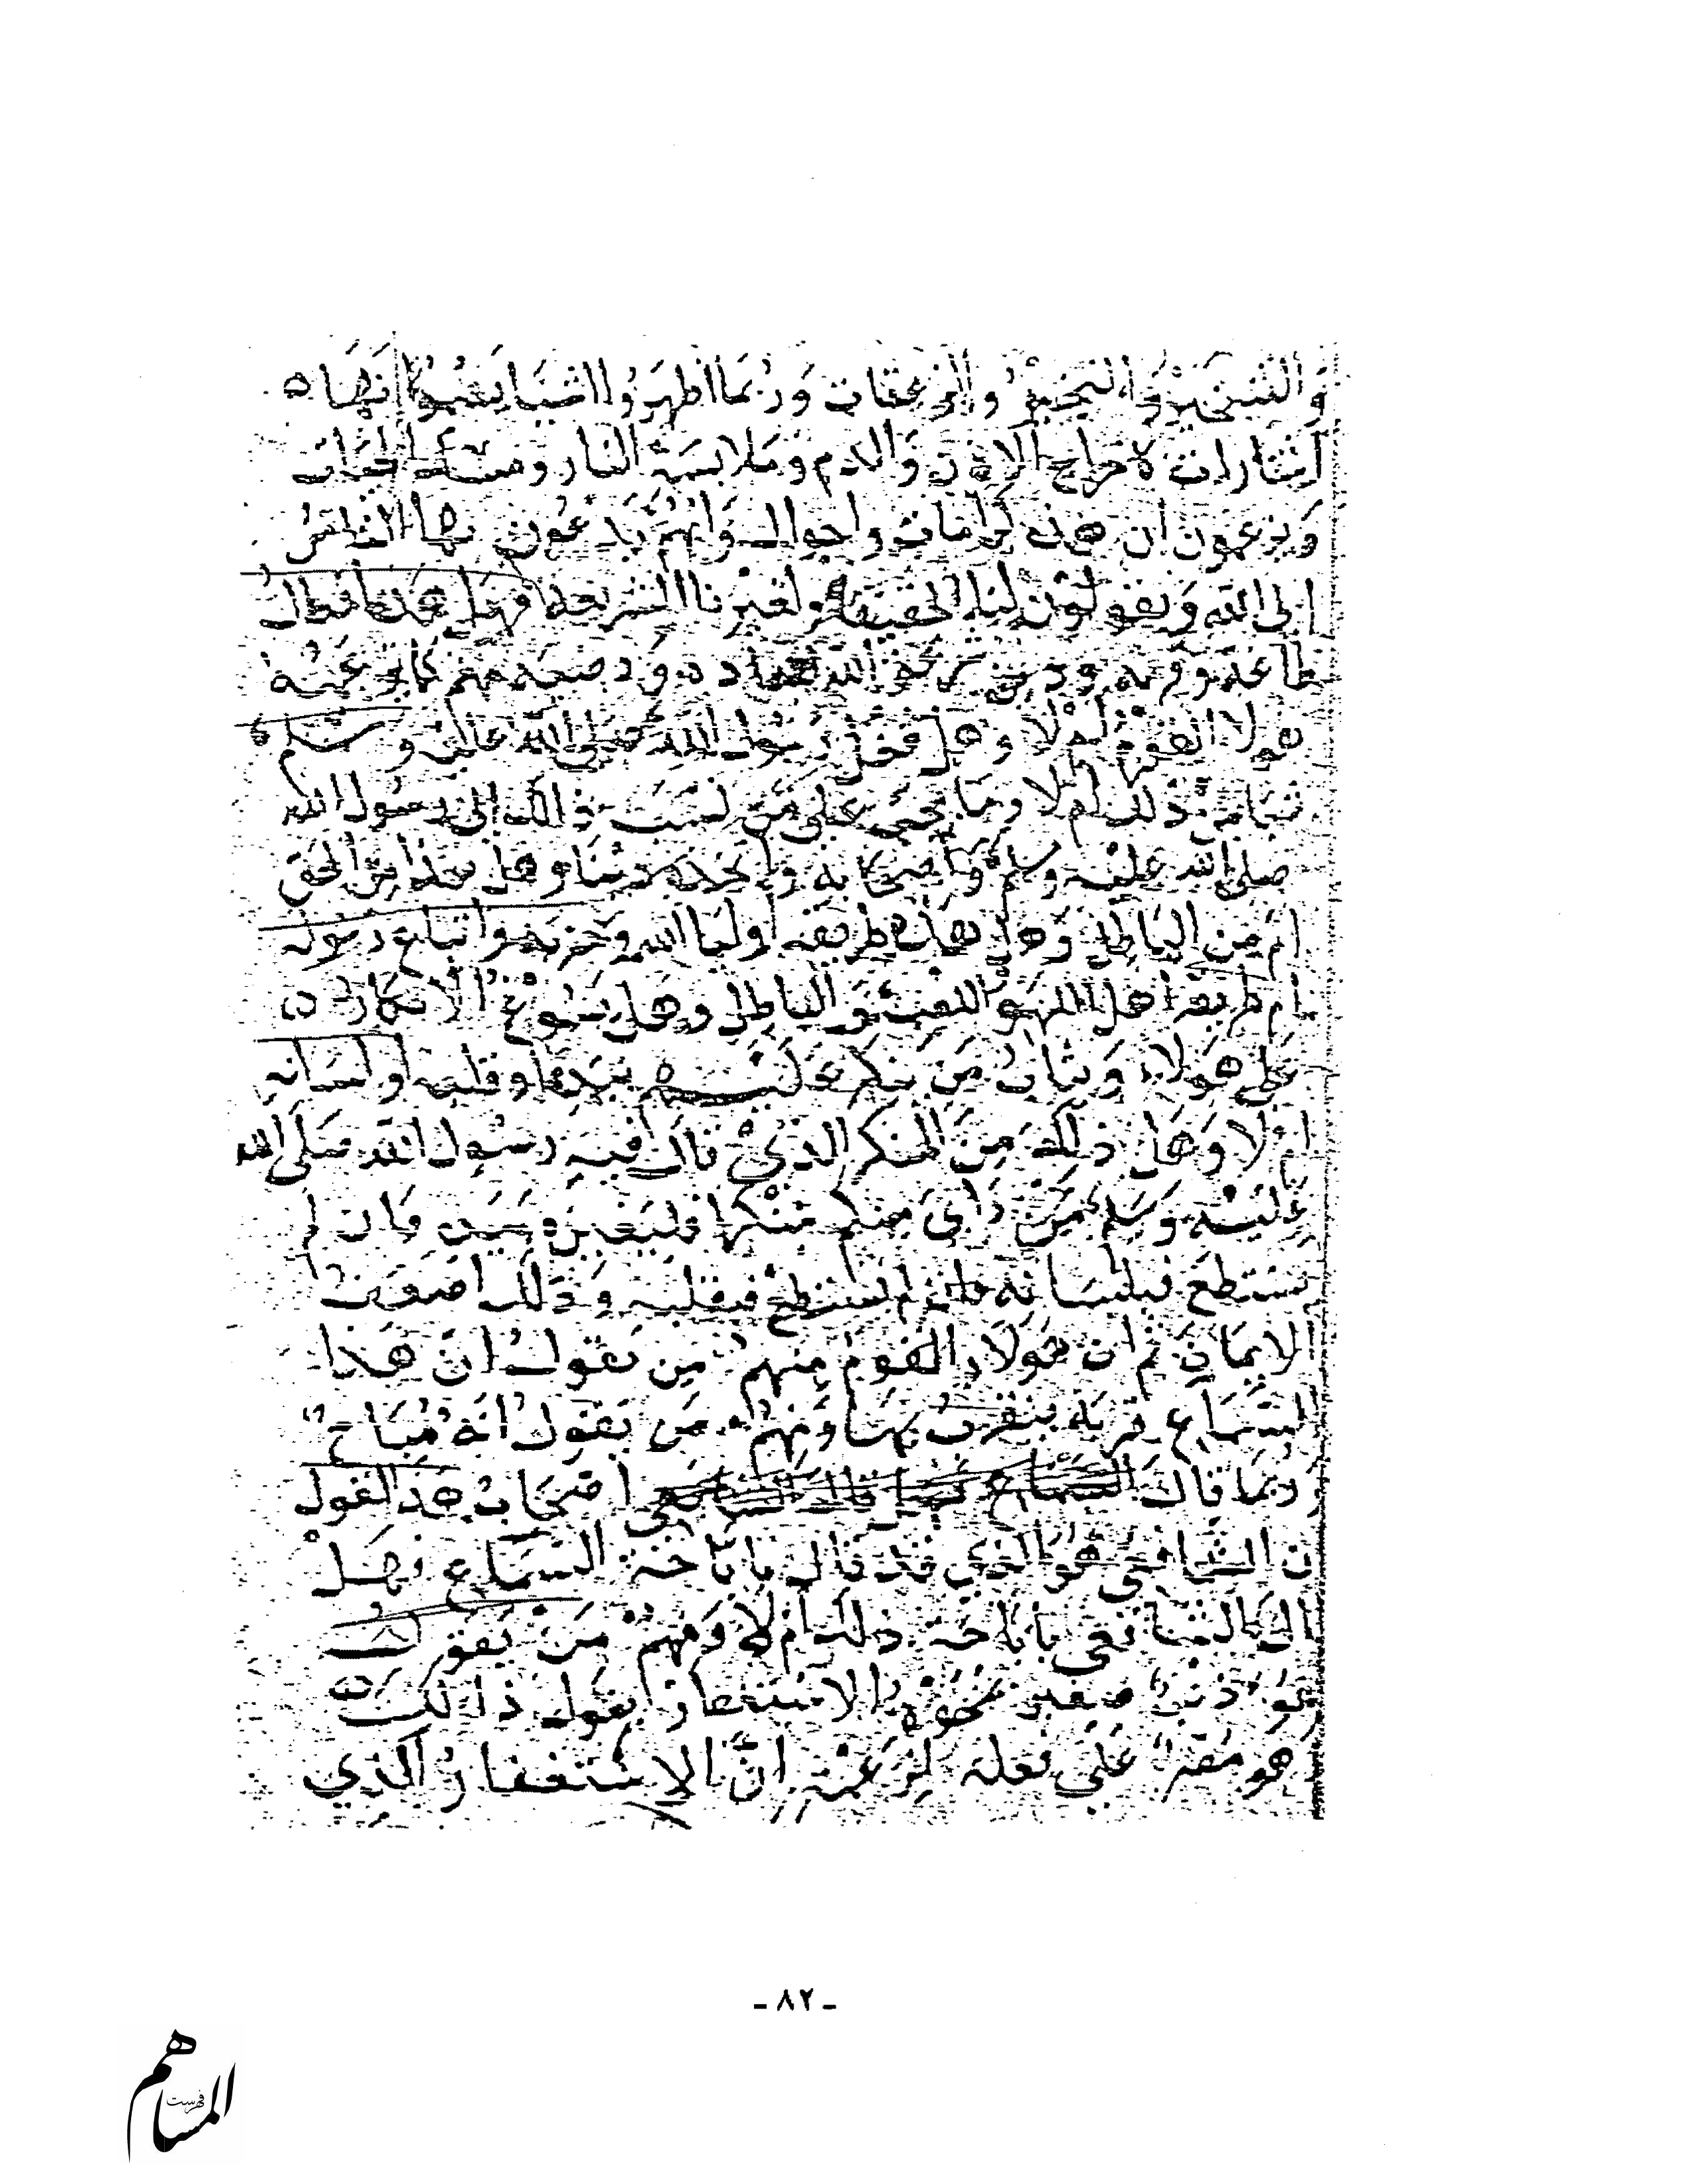 والشخير والنخير والزعقات وربما اظهروا اشيا يعبوا انها ه
اشارات لاخراج الاذن والادم وملابسة النار ومسك الحيات
ويزعمون ان هذه كرامات واحوال وانهم يدعون بها الناس
الى الله ويقولون لنا الحقيقة ولغيرنا الشريعة فهل هذه افعال
طاعة وقربة ودين شرعه الله لعباده
هولا القوم ام لا وهل فعل رسول الله صلى الله عليه وسلم
شيا من ذلك ام لا وما يجب على من نسب ذلك الى رسول الله
صلى الله عليه وسلم واصحابه واتخذه دينا وهل هذا من الحق
ام من الباطل وهل هذه طريقة اوليا الله وحزبه واتباع رسوله
ام طريقة اهل اللهو واللعب والباطل وهل يسوغ الانكار
على هولاء ويثاب من ينكر عليهم بيده او قلبه او لسانه
ام لا وهل ذلك من المنكر الذي قال فيه رسول الله صلى الله
عليه وسلم من راى منكم منكرا فليغيره بيده فان لم
يستطع فبلسانه فان لم يستطع فبقلبه وذلك اضعف
الايمان ثم ان هولاء القوم منهم من يقول ان هذا
السماع قربة يتقرب بها ومنهم من يقول انه مباح
وربما قال السماع فهل قال الشافعي اصحاب هذ القول
ن الشافعي هو الذي قد قال باباحة السماع فهل
ال الشافعي باباحة ذلك ام لا ومنهم من يقول
هو ذنب صغير تمحوه الاستغفار يقول ذالك
هو مقر على فعله لزعمه ان الاستغفار الذي
- ٨٢ -
المساهم
فهرست